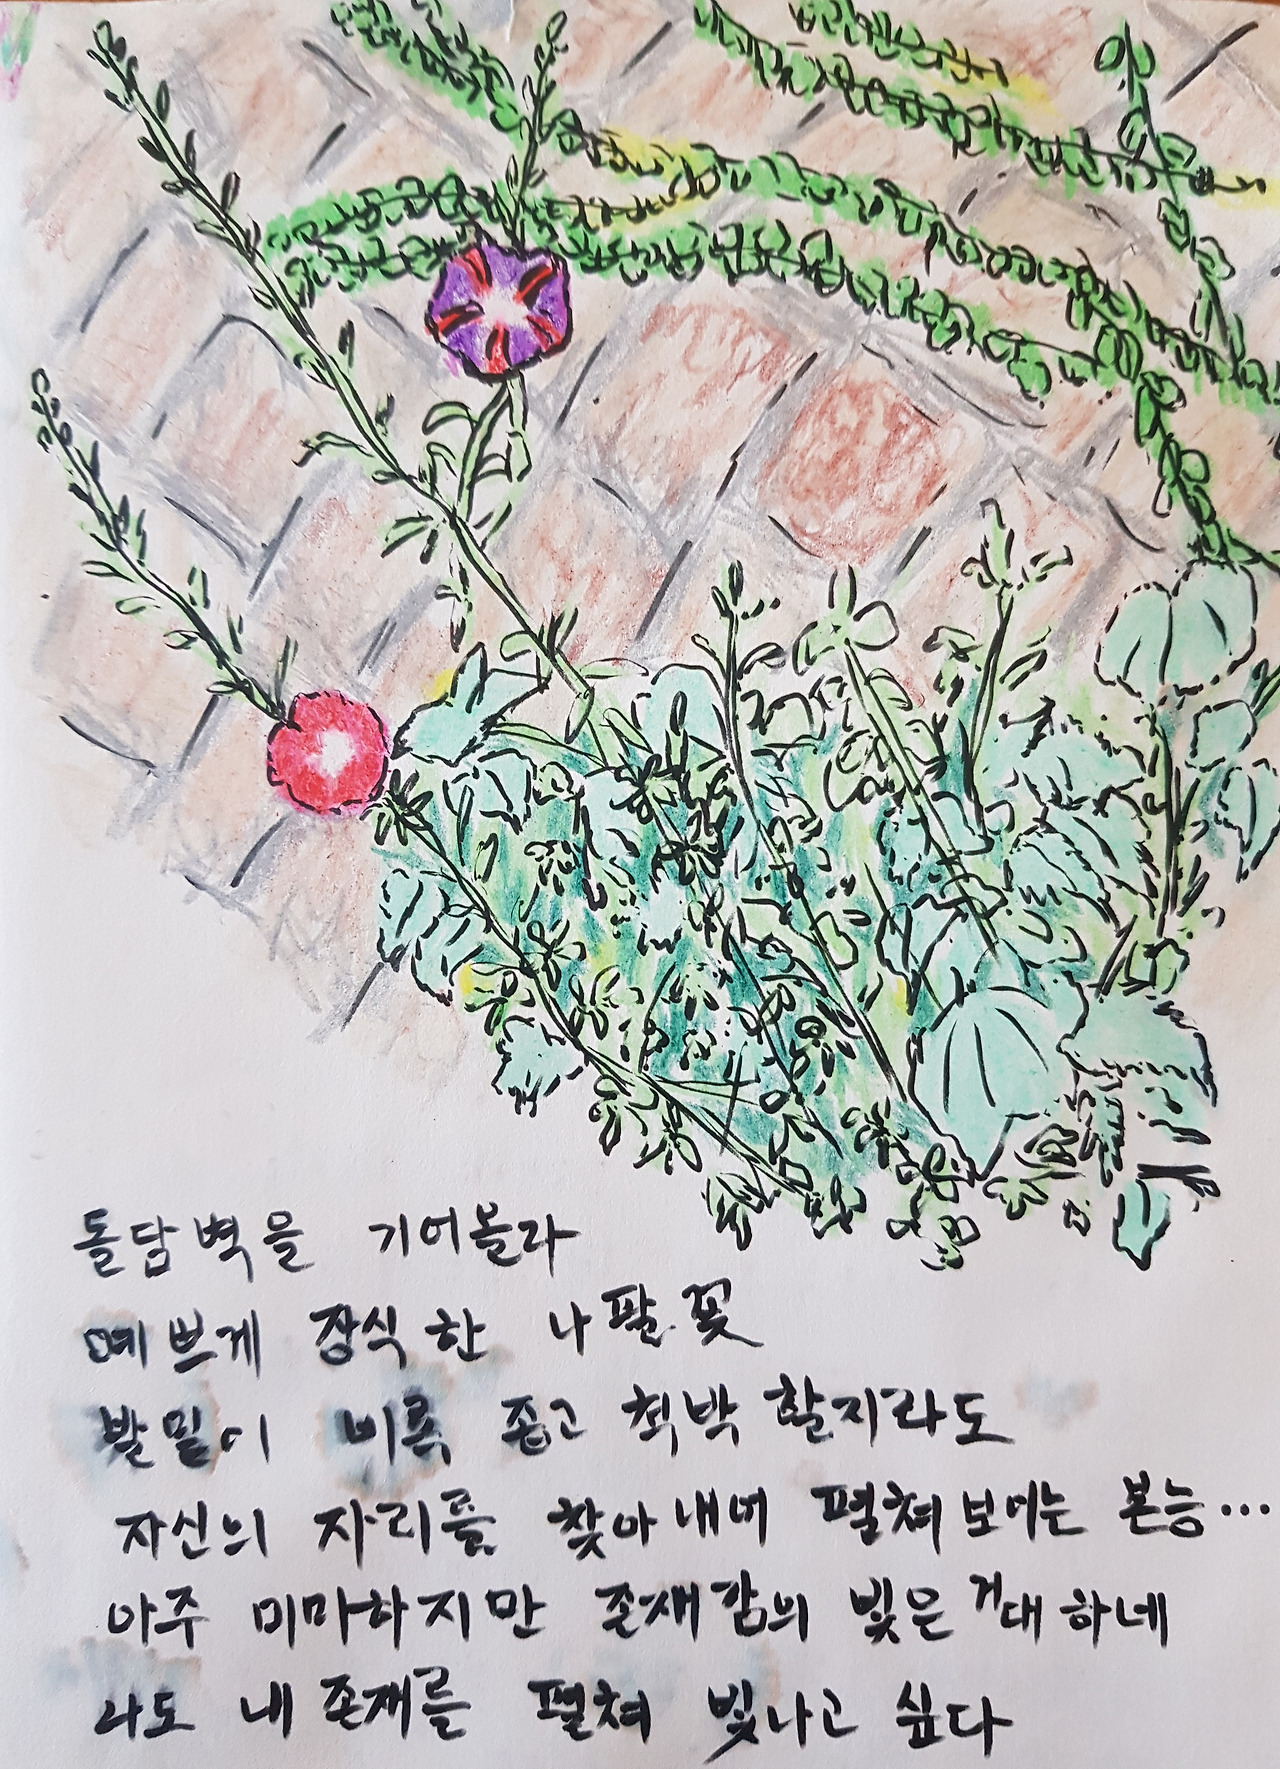 돌담벽을 기어올라
예쁘게 장식한 나팔꽃
발밑이 비록 좁고 척박할지라도
자신의 자리를 찾아내어 펼쳐보이는 본능…
아주 미미하지만 존재감의 빛은 거대하네
나도 내 존재를 펼쳐 빛나고 싶다